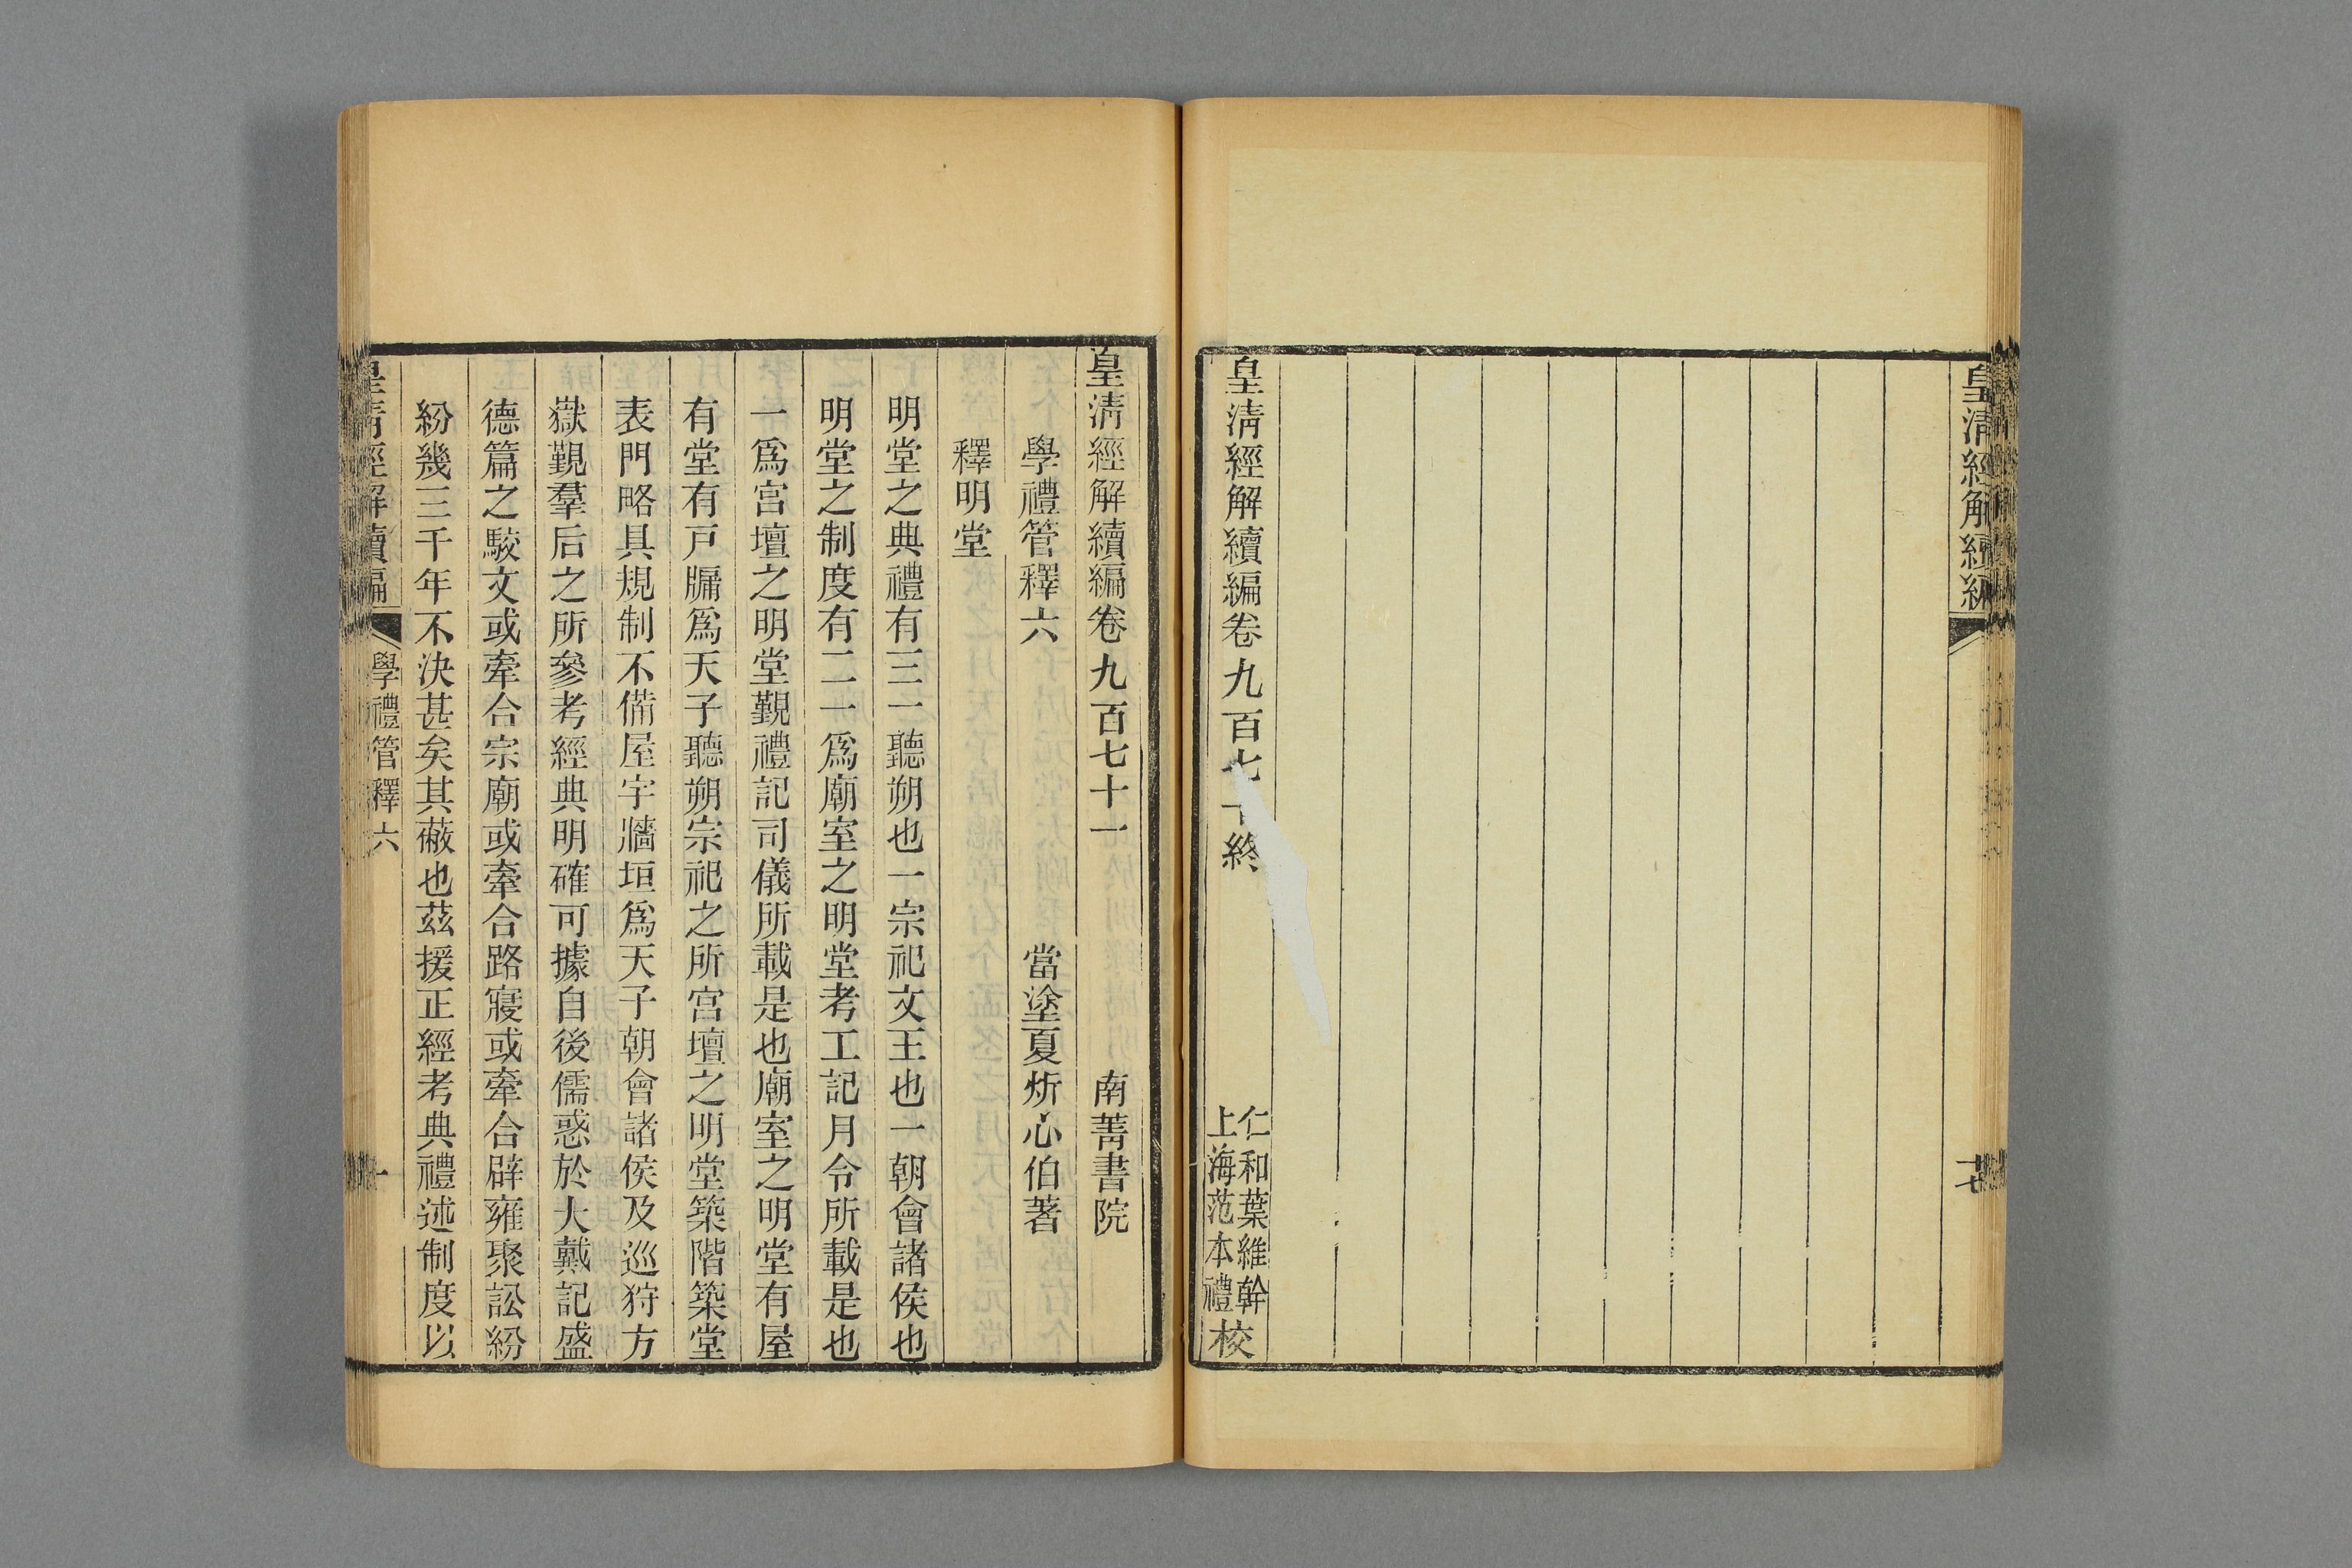 皇清經解續編
皇清經解續編卷九百七十終
仁和葉維幹
上海范本禮
校
皇清經解續編卷九百七十一
南菁書院
學禮管釋六
當塗夏炘心伯著
釋明堂
明堂之典禮有三一聽朔也一宗祀文王也一朝會諸侯也
明堂之制度有二一爲廟室之明堂考工記月令所載是也
一爲宮壇之明堂覲禮記司儀所載是也廟室之明堂有屋
有堂有戸牖爲天子聽朔宗祀之所宮壇之明堂築階築堂
表門略具規制不備屋宇牆垣爲天子朝會諸侯及巡狩方
嶽覲羣后之所參考經典明確可據自後儒惑於大戴記盛
德篇之駮文或牽合宗廟或牽合路寢或牽合辟雍聚訟紛
紛幾三千年不決甚矣其蔽也茲援正經考典禮述制度以
皇清經解續編
學禮管釋六
一